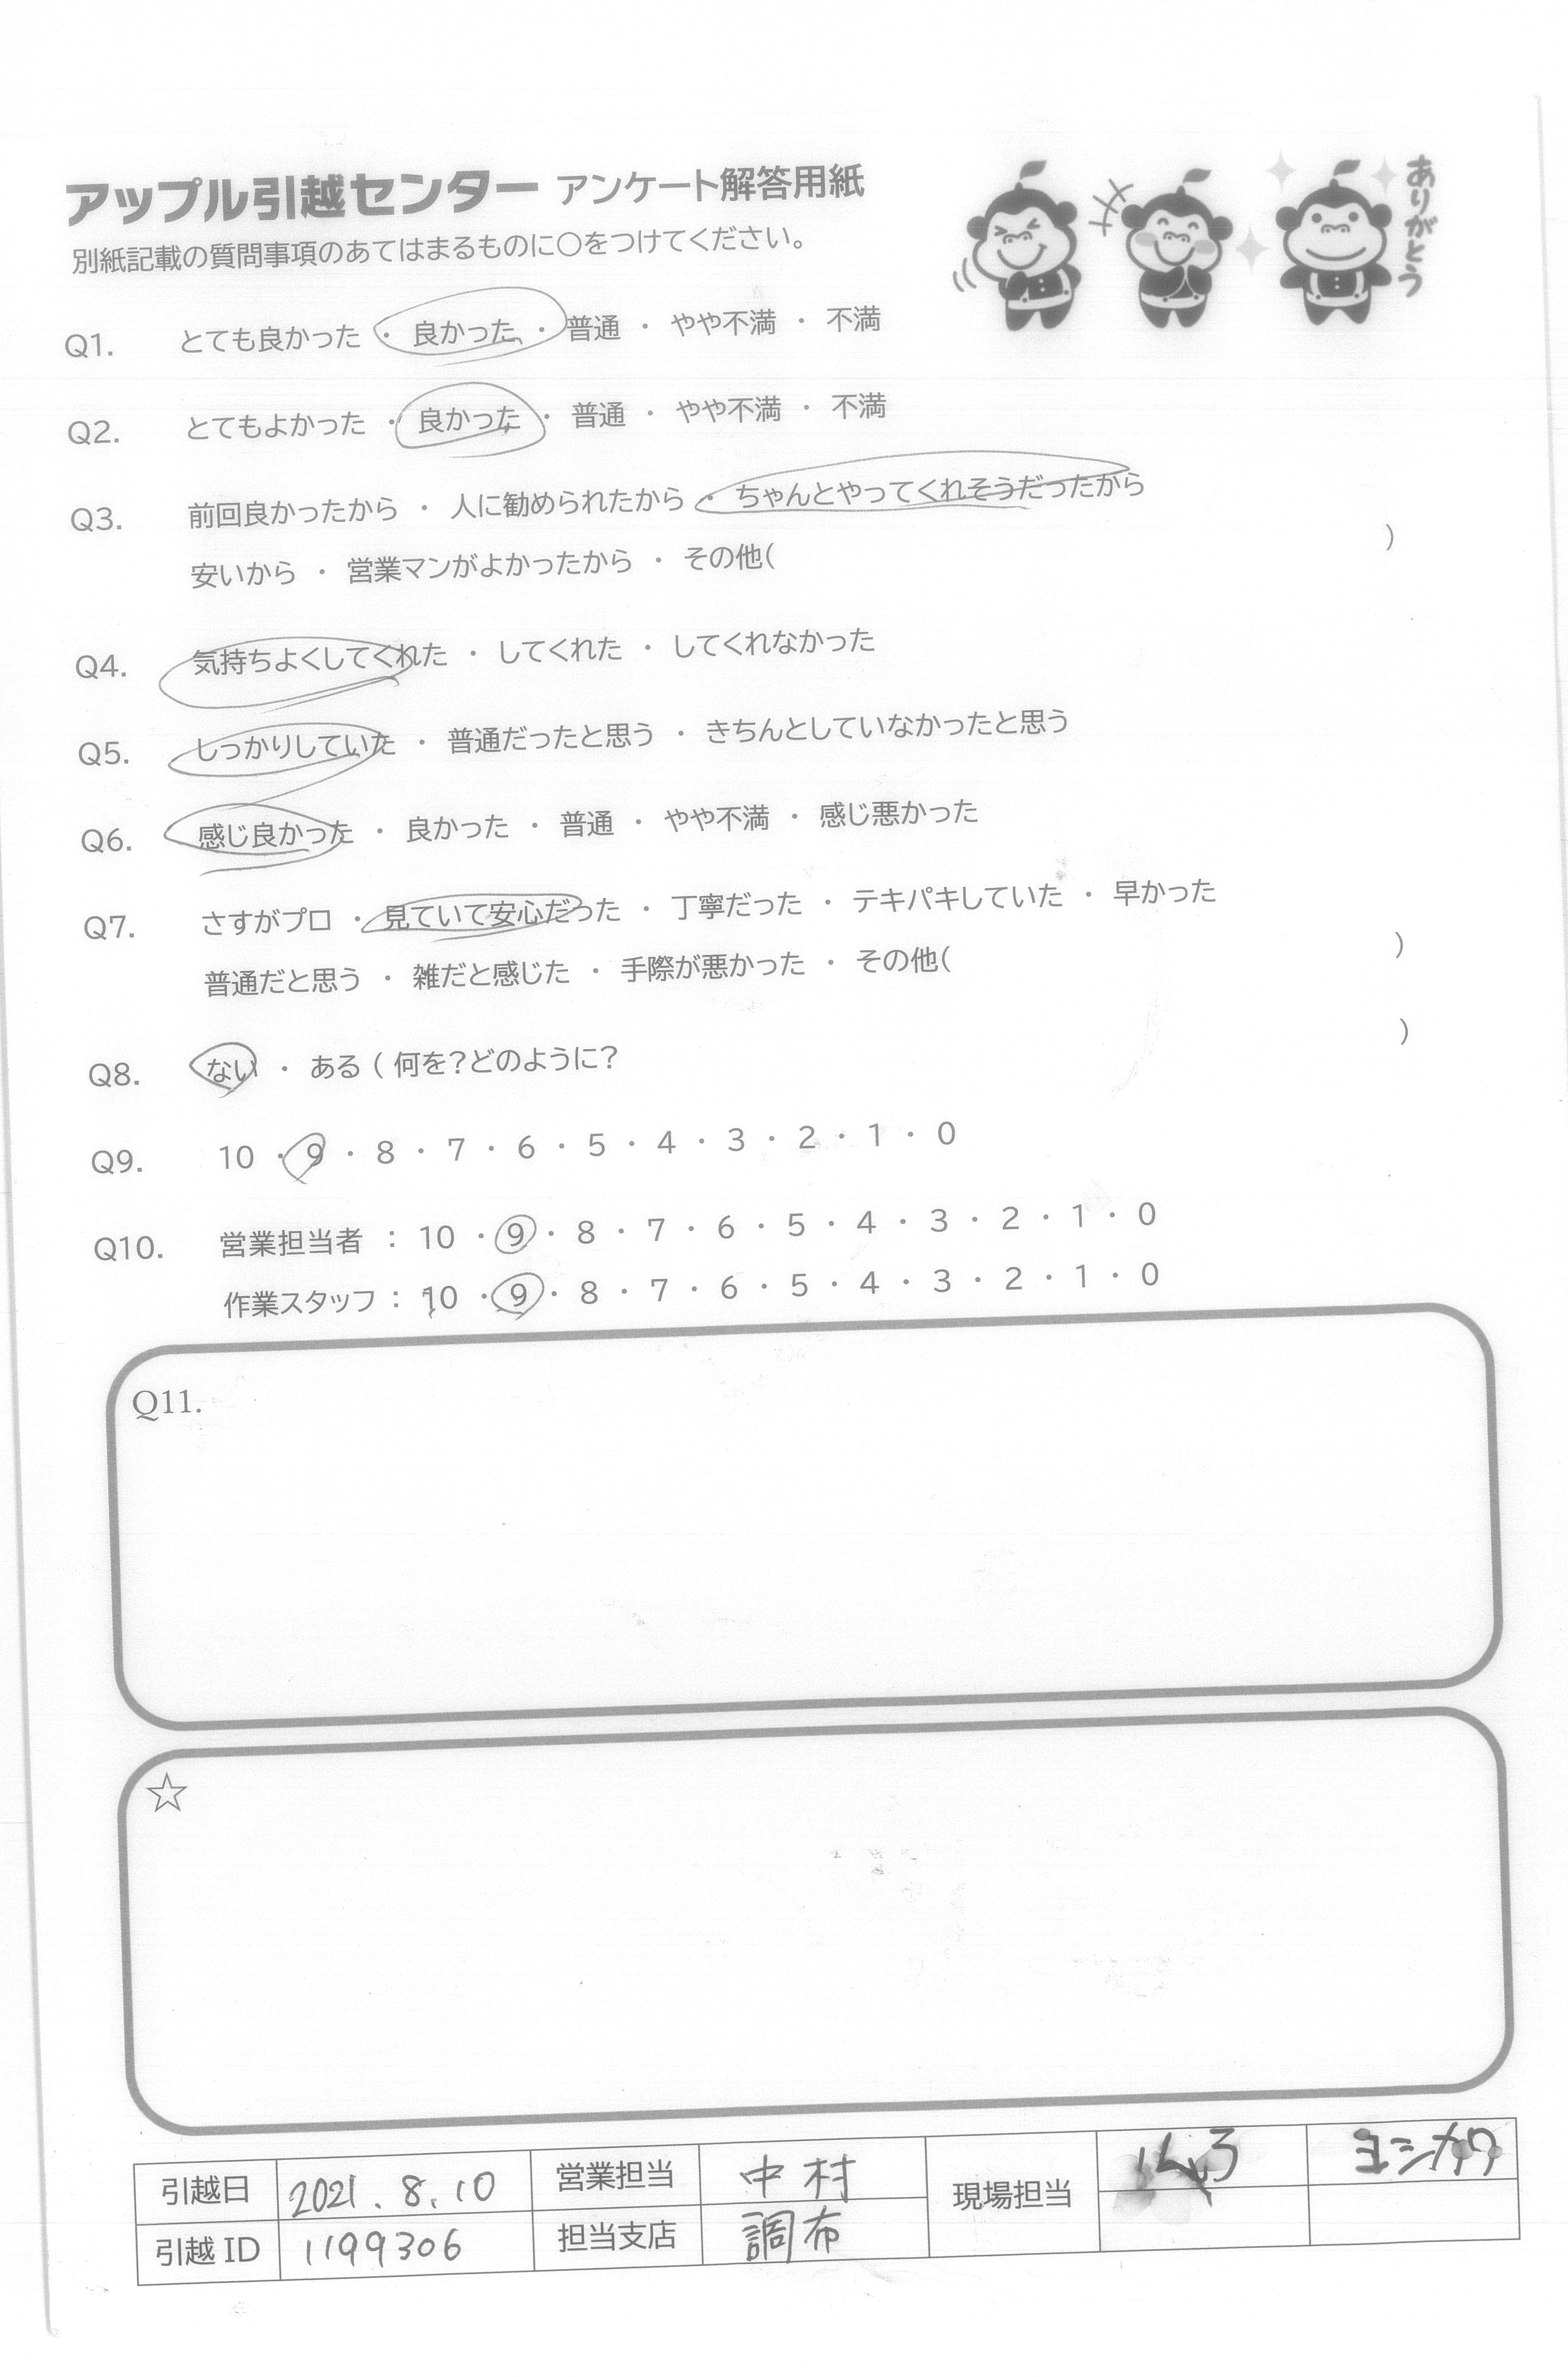 アップル引越センター アンケート解答用紙
ありがとう
別紙記載の質問事項のあてはまるものに○をつけてください。
Q1. とても良かった ・ 良かった ・ 普通 ・ やや不満 ・ 不満
Q2. とてもよかった ・ 良かった ・ 普通 ・ やや不満 ・ 不満
Q3. 前回良かったから ・ 人に勧められたから ・ ちゃんとやってくれそうだったから
安いから ・ 営業マンがよかったから ・ その他( )
Q4. 気持ちよくしてくれた ・ してくれた ・ してくれなかった
Q5. しっかりしていた ・ 普通だったと思う ・ きちんとしていなかったと思う
Q6. 感じ良かった ・ 良かった ・ 普通 ・ やや不満 ・ 感じ悪かった
Q7. さすがプロ ・ 見ていて安心だった ・ 丁寧だった ・ テキパキしていた ・ 早かった
普通だと思う ・ 雑だと感じた ・ 手際が悪かった ・ その他( )
Q8. ない ・ ある ( 何を?どのように? )
Q9. 10 ・ 9 ・ 8 ・ 7 ・ 6 ・ 5 ・ 4 ・ 3 ・ 2 ・ 1 ・ 0
Q10. 営業担当者 : 10 ・ 9 ・ 8 ・ 7 ・ 6 ・ 5 ・ 4 ・ 3 ・ 2 ・ 1 ・ 0
作業スタッフ : 10 ・ 9 ・ 8 ・ 7 ・ 6 ・ 5 ・ 4 ・ 3 ・ 2 ・ 1 ・ 0
Q11.
☆
引越日 2021.8.10 営業担当 中村 現場担当 ヨシカワ
引越 ID 1199306 担当支店 調布